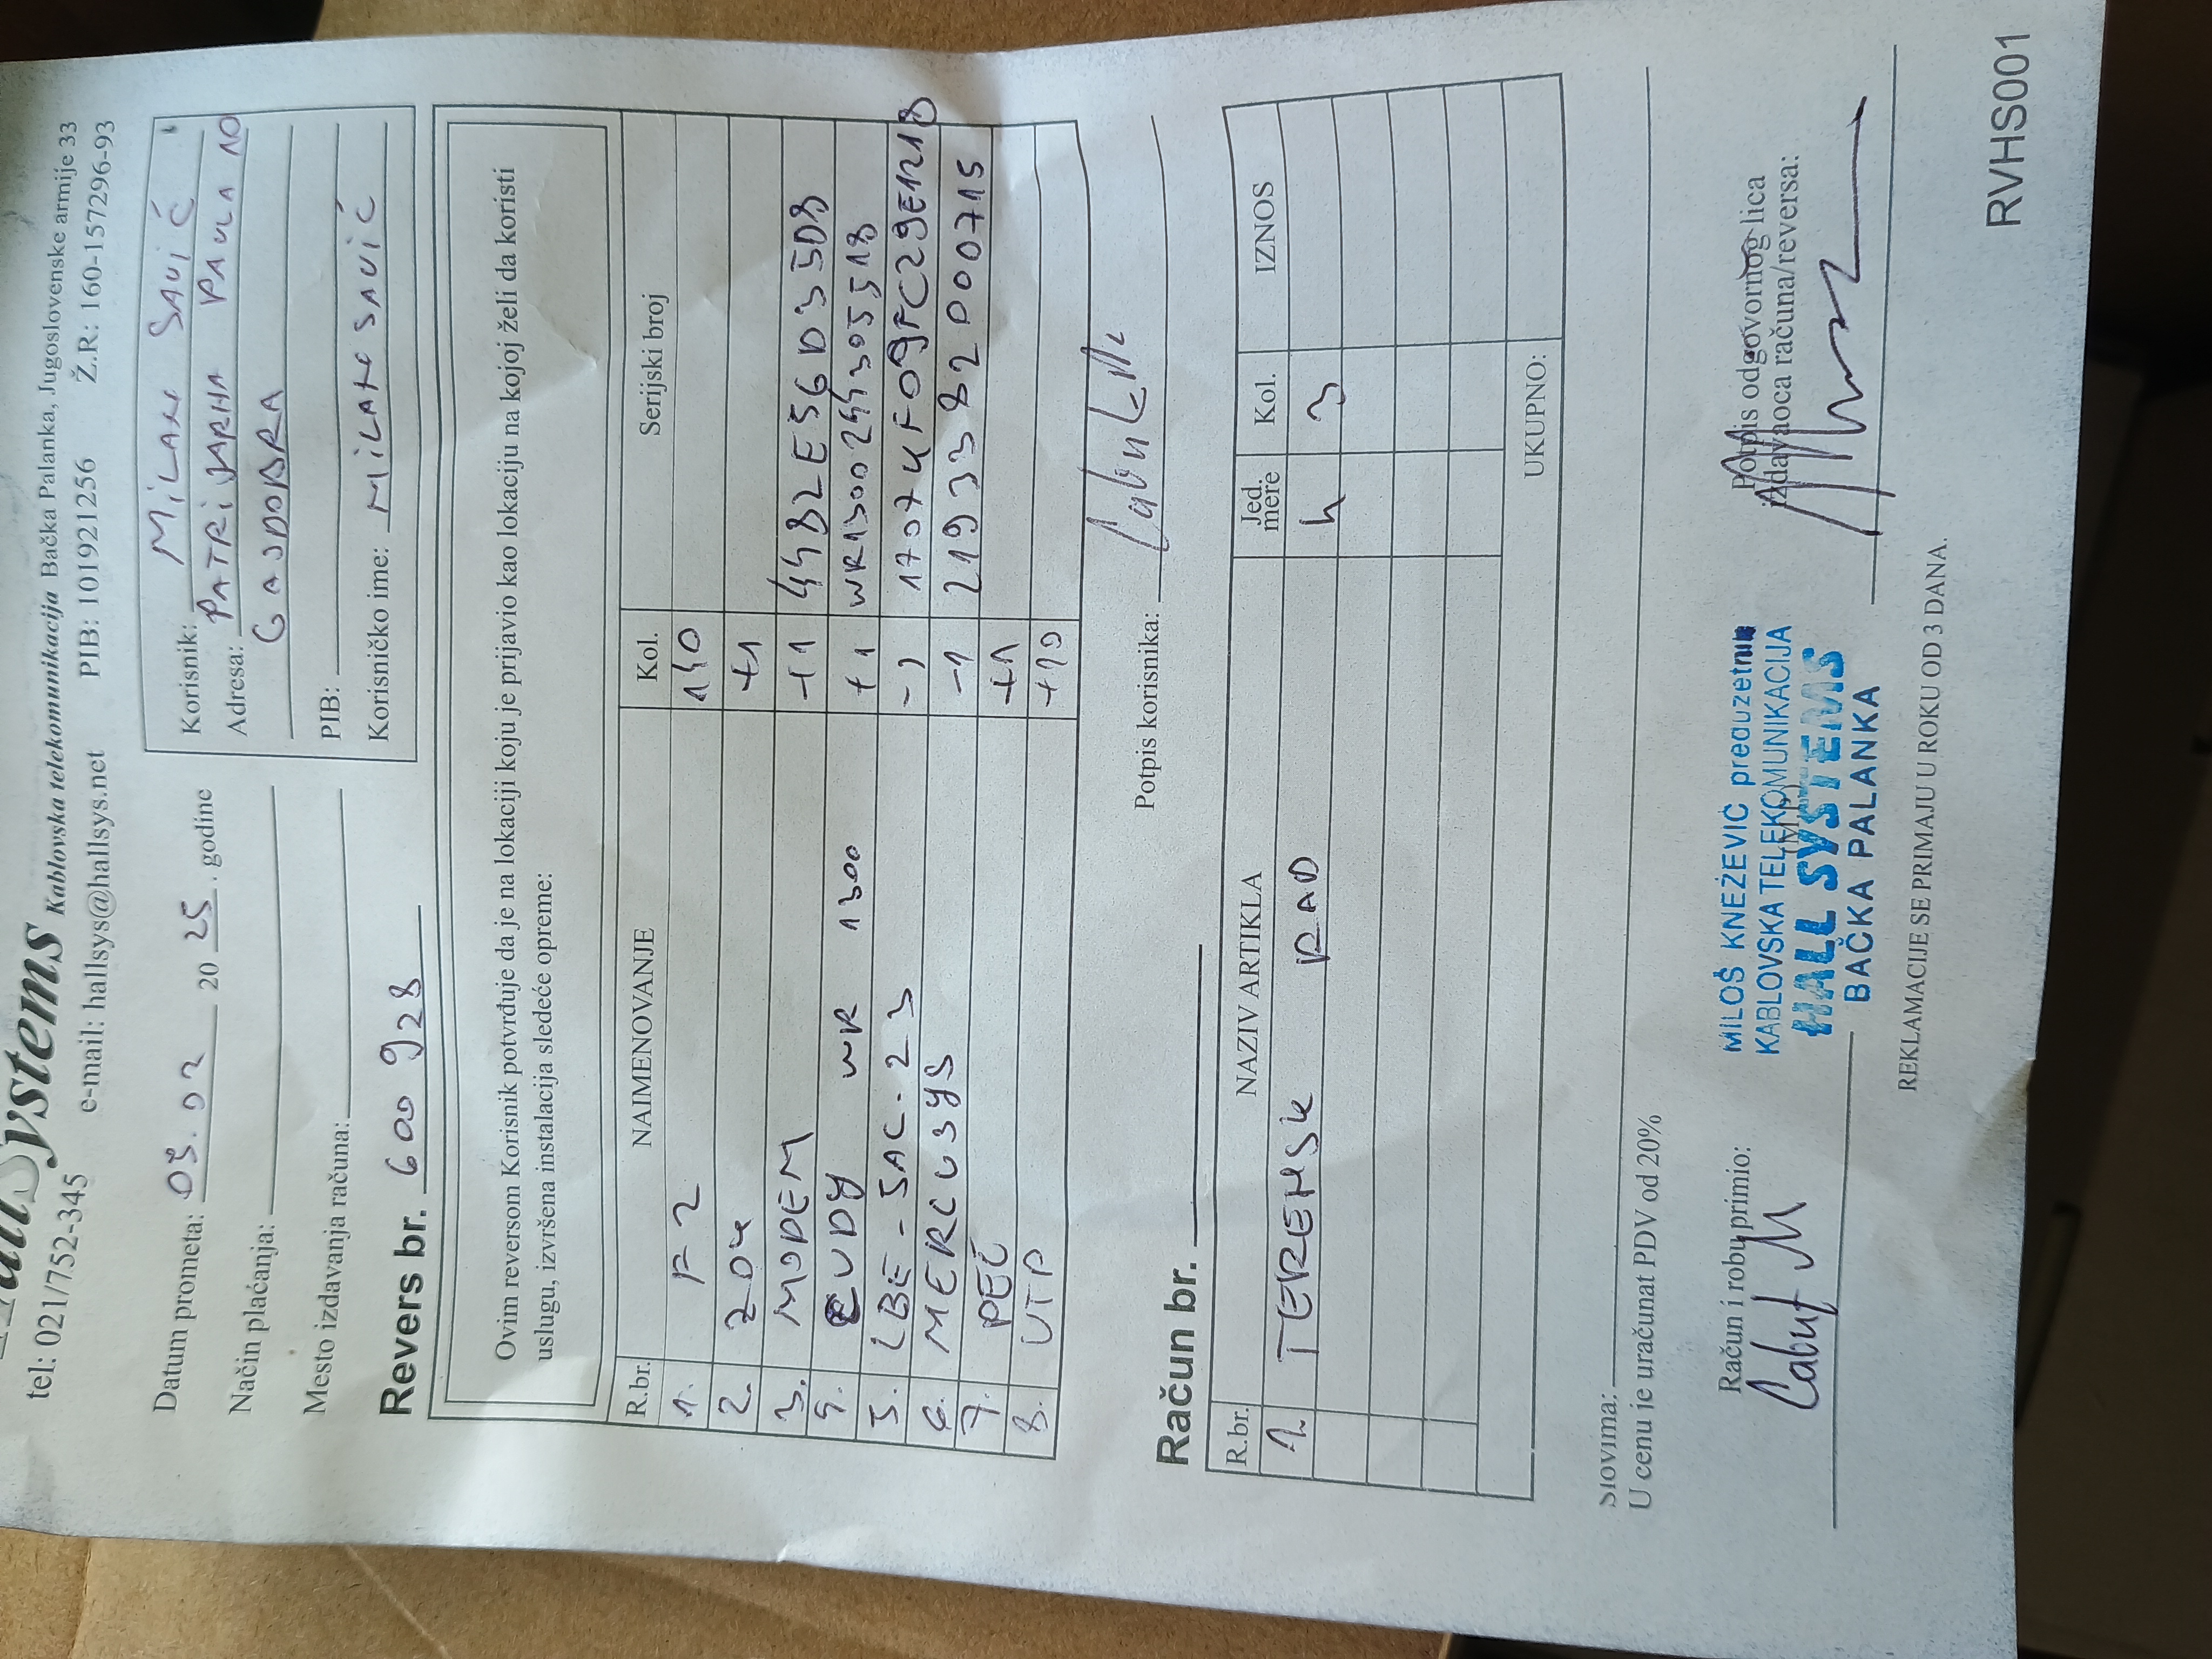 Systems Kablovska telekomunikacija Bačka Palanka, Jugoslovenske armije 33
tel: 021/752-345 e-mail: hallsys@hallsys.net PIB: 101921256 Ž.R: 160-157296-93
Datum prometa: 03. 02 20 25. godine
Način plaćanja:
Mesto izdavanja računa:
Korisnik: MILAN SAVIĆ
Adresa: PATRIJARHA PAVLA 10
GAJDOBRA
PIB:
Korisničko ime: MILAN SAVIĆ
Revers br. 600 928
Ovim reversom Korisnik potvrđuje da je na lokaciji koju je prijavio kao lokaciju na kojoj želi da koristi
uslugu, izvršena instalacija sledeće opreme:
R.br. NAIMENOVANJE Kol. Serijski broj
1. F2 140
2. ZOK +1
3. MODEM +1 4482E56D35D8
4. CUDY WR 1300 +1 WR13002443055518
5. LBE-5AC-23 -1 1707KF09FC29E1218
6. MERCUSYS -1 2193382000715
7. PEČ +1
8. UTP +10
Potpis korisnika:
Račun br.
R.br. NAZIV ARTIKLA Jed. mere Kol. IZNOS
1. TERENSK RAD h 3
UKUPNO:
Slovima:
U cenu je uračunat PDV od 20%
Račun i robu primio:
(M.P.)
Potpis odgovornog lica
izdavaoca računa/reversa:
MILOŠ KNEŽEVIĆ preduzetnik
KABLOVSKA TELEKOMUNIKACIJA
HALL SYSTEMS
BAČKA PALANKA
REKLAMACIJE SE PRIMAJU U ROKU OD 3 DANA.
RVHS001